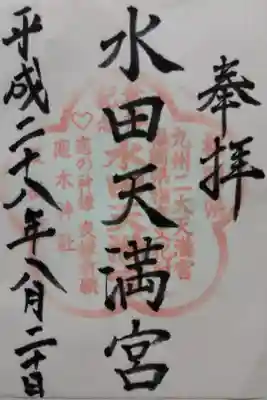 奉拝
水田天満宮
平成二十八年八月二十日
九州二大天満宮
水田
恋の神様 良縁祈願
恋木神社